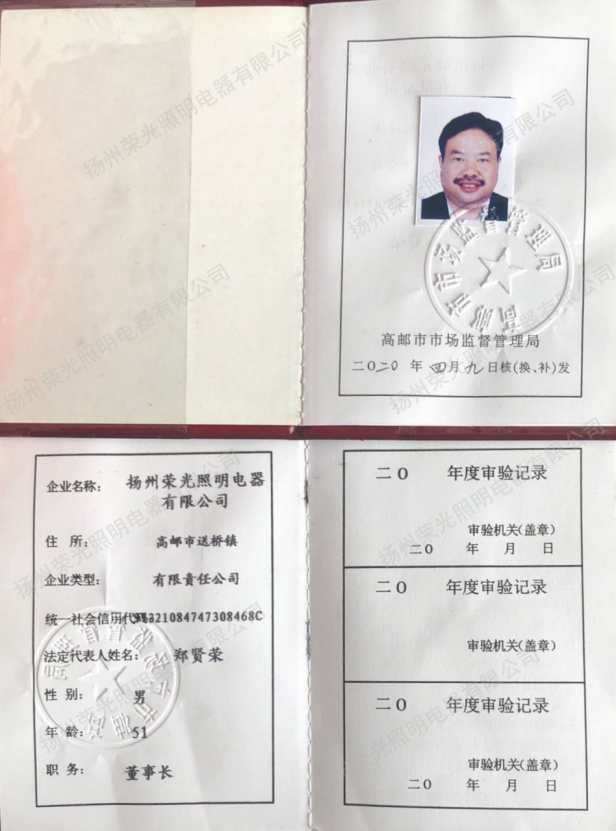 高邮市市场监督管理局
高邮市市场监督管理局
二〇二〇年四月九日核(换、补)发
企业名称: 扬州荣光照明电器
有限公司
住 所: 高邮市送桥镇
企业类型: 有限责任公司
统一社会信用代
321084747308468C
法定代表人姓名: 郑贤荣
性 别: 男
年 龄: 51
职 务: 董事长
二〇 年度审验记录
审验机关(盖章)
二〇 年 月 日
二〇 年度审验记录
审验机关(盖章)
二〇 年度审验记录
审验机关(盖章)
二〇 年 月 日
扬州荣光照明电器有限公司